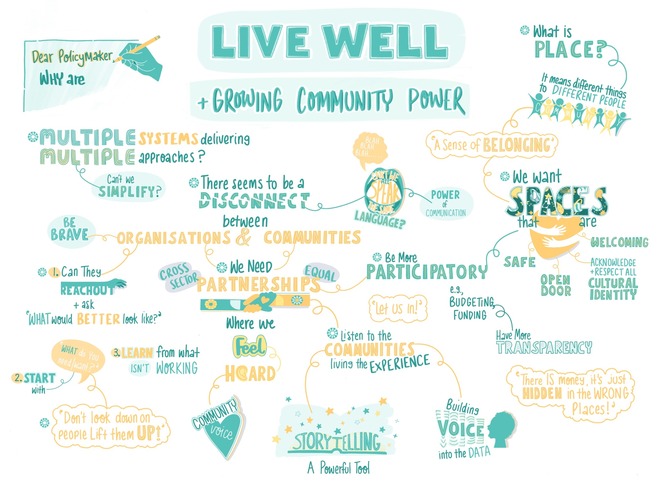 LIVE WELL
+ GROWING COMMUNITY POWER
Dear PolicyMaker,
WHY are
MULTIPLE SYSTEMS delivering
MULTIPLE approaches?
Can't we
SIMPLIFY?
There seems to be a
DISCONNECT
between
ORGANISATIONS & COMMUNITIES
BE
BRAVE
SPEAK
LANGUAGE?
POWER
of
COMMUNICATION
What is
PLACE?
It means different things
to DIFFERENT PEOPLE
"A Sense of BELONGING"
We want
SPACES
that are
SAFE
OPEN
DOOR
WELCOMING
ACKNOWLEDGE
+ RESPECT ALL
CULTURAL
IDENTITY
1. Can They
REACH OUT
+ ask
"WHAT would BETTER look like?"
2. START
with
WHAT
3. LEARN from what
ISN'T WORKING
"Don't look down on
people Lift them UP!"
CROSS
SECTOR
We Need
EQUAL
PARTNERSHIPS
Where we
Feel
HEARD
COMMUNITY
voice
Be More
PARTICIPATORY
e.g,
BUDGETING,
FUNDING
"Let us in!"
Have More
TRANSPARENCY
"There IS money, it's Just
HIDDEN in the WRONG
Places!"
Listen to the
COMMUNITIES
living the EXPERIENCE
STORYTELLING
A Powerful Tool
Building
VOICE
into the DATA